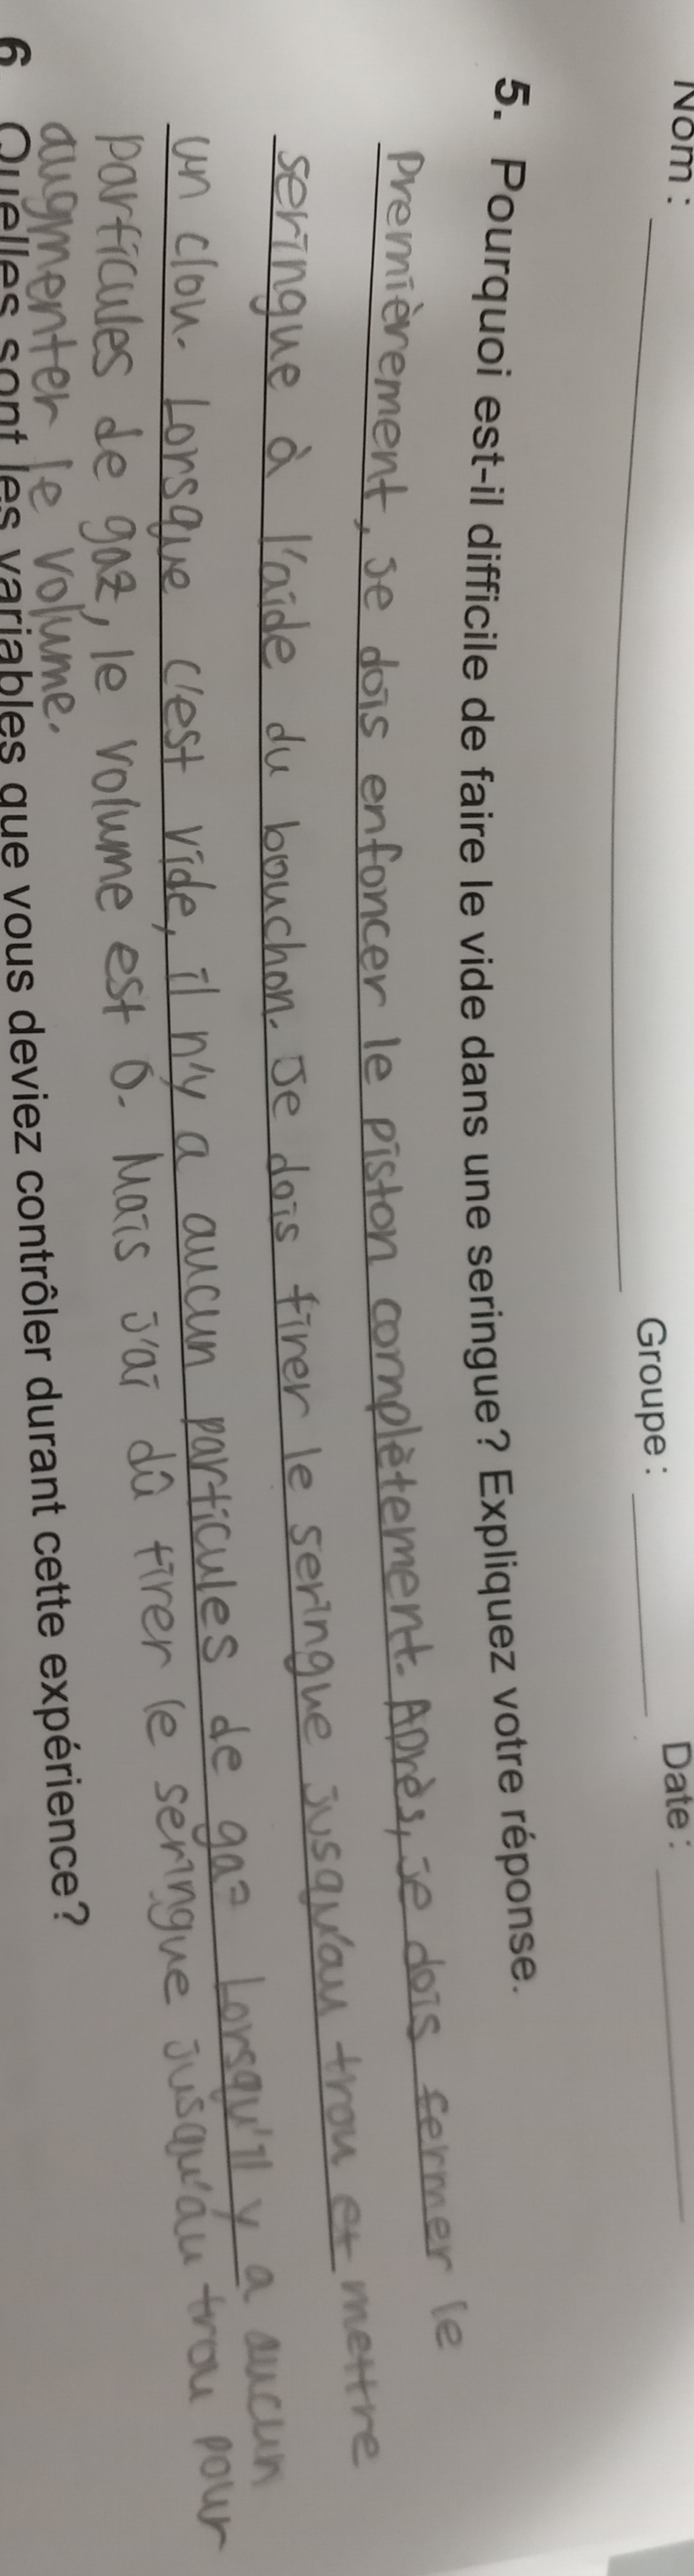 Nom : Groupe : Date :
5. Pourquoi est-il difficile de faire le vide dans une seringue? Expliquez votre réponse.
Premièrement, je dois enfoncer le piston complètement. Après, je dois fermer le
seringue à l'aide du bouchon. Je dois tirer le seringue jusqu'au trou et mettre
un clou. Lorsque c'est vide, il n'y a aucun particules de gaz Lorsqu'il y a aucun
particules de gaz, le volume est 0. Mais j'ai dû tirer le seringue jusqu'au trou pour
augmenter le volume.
6 Quelles sont les variables que vous deviez contrôler durant cette expérience?